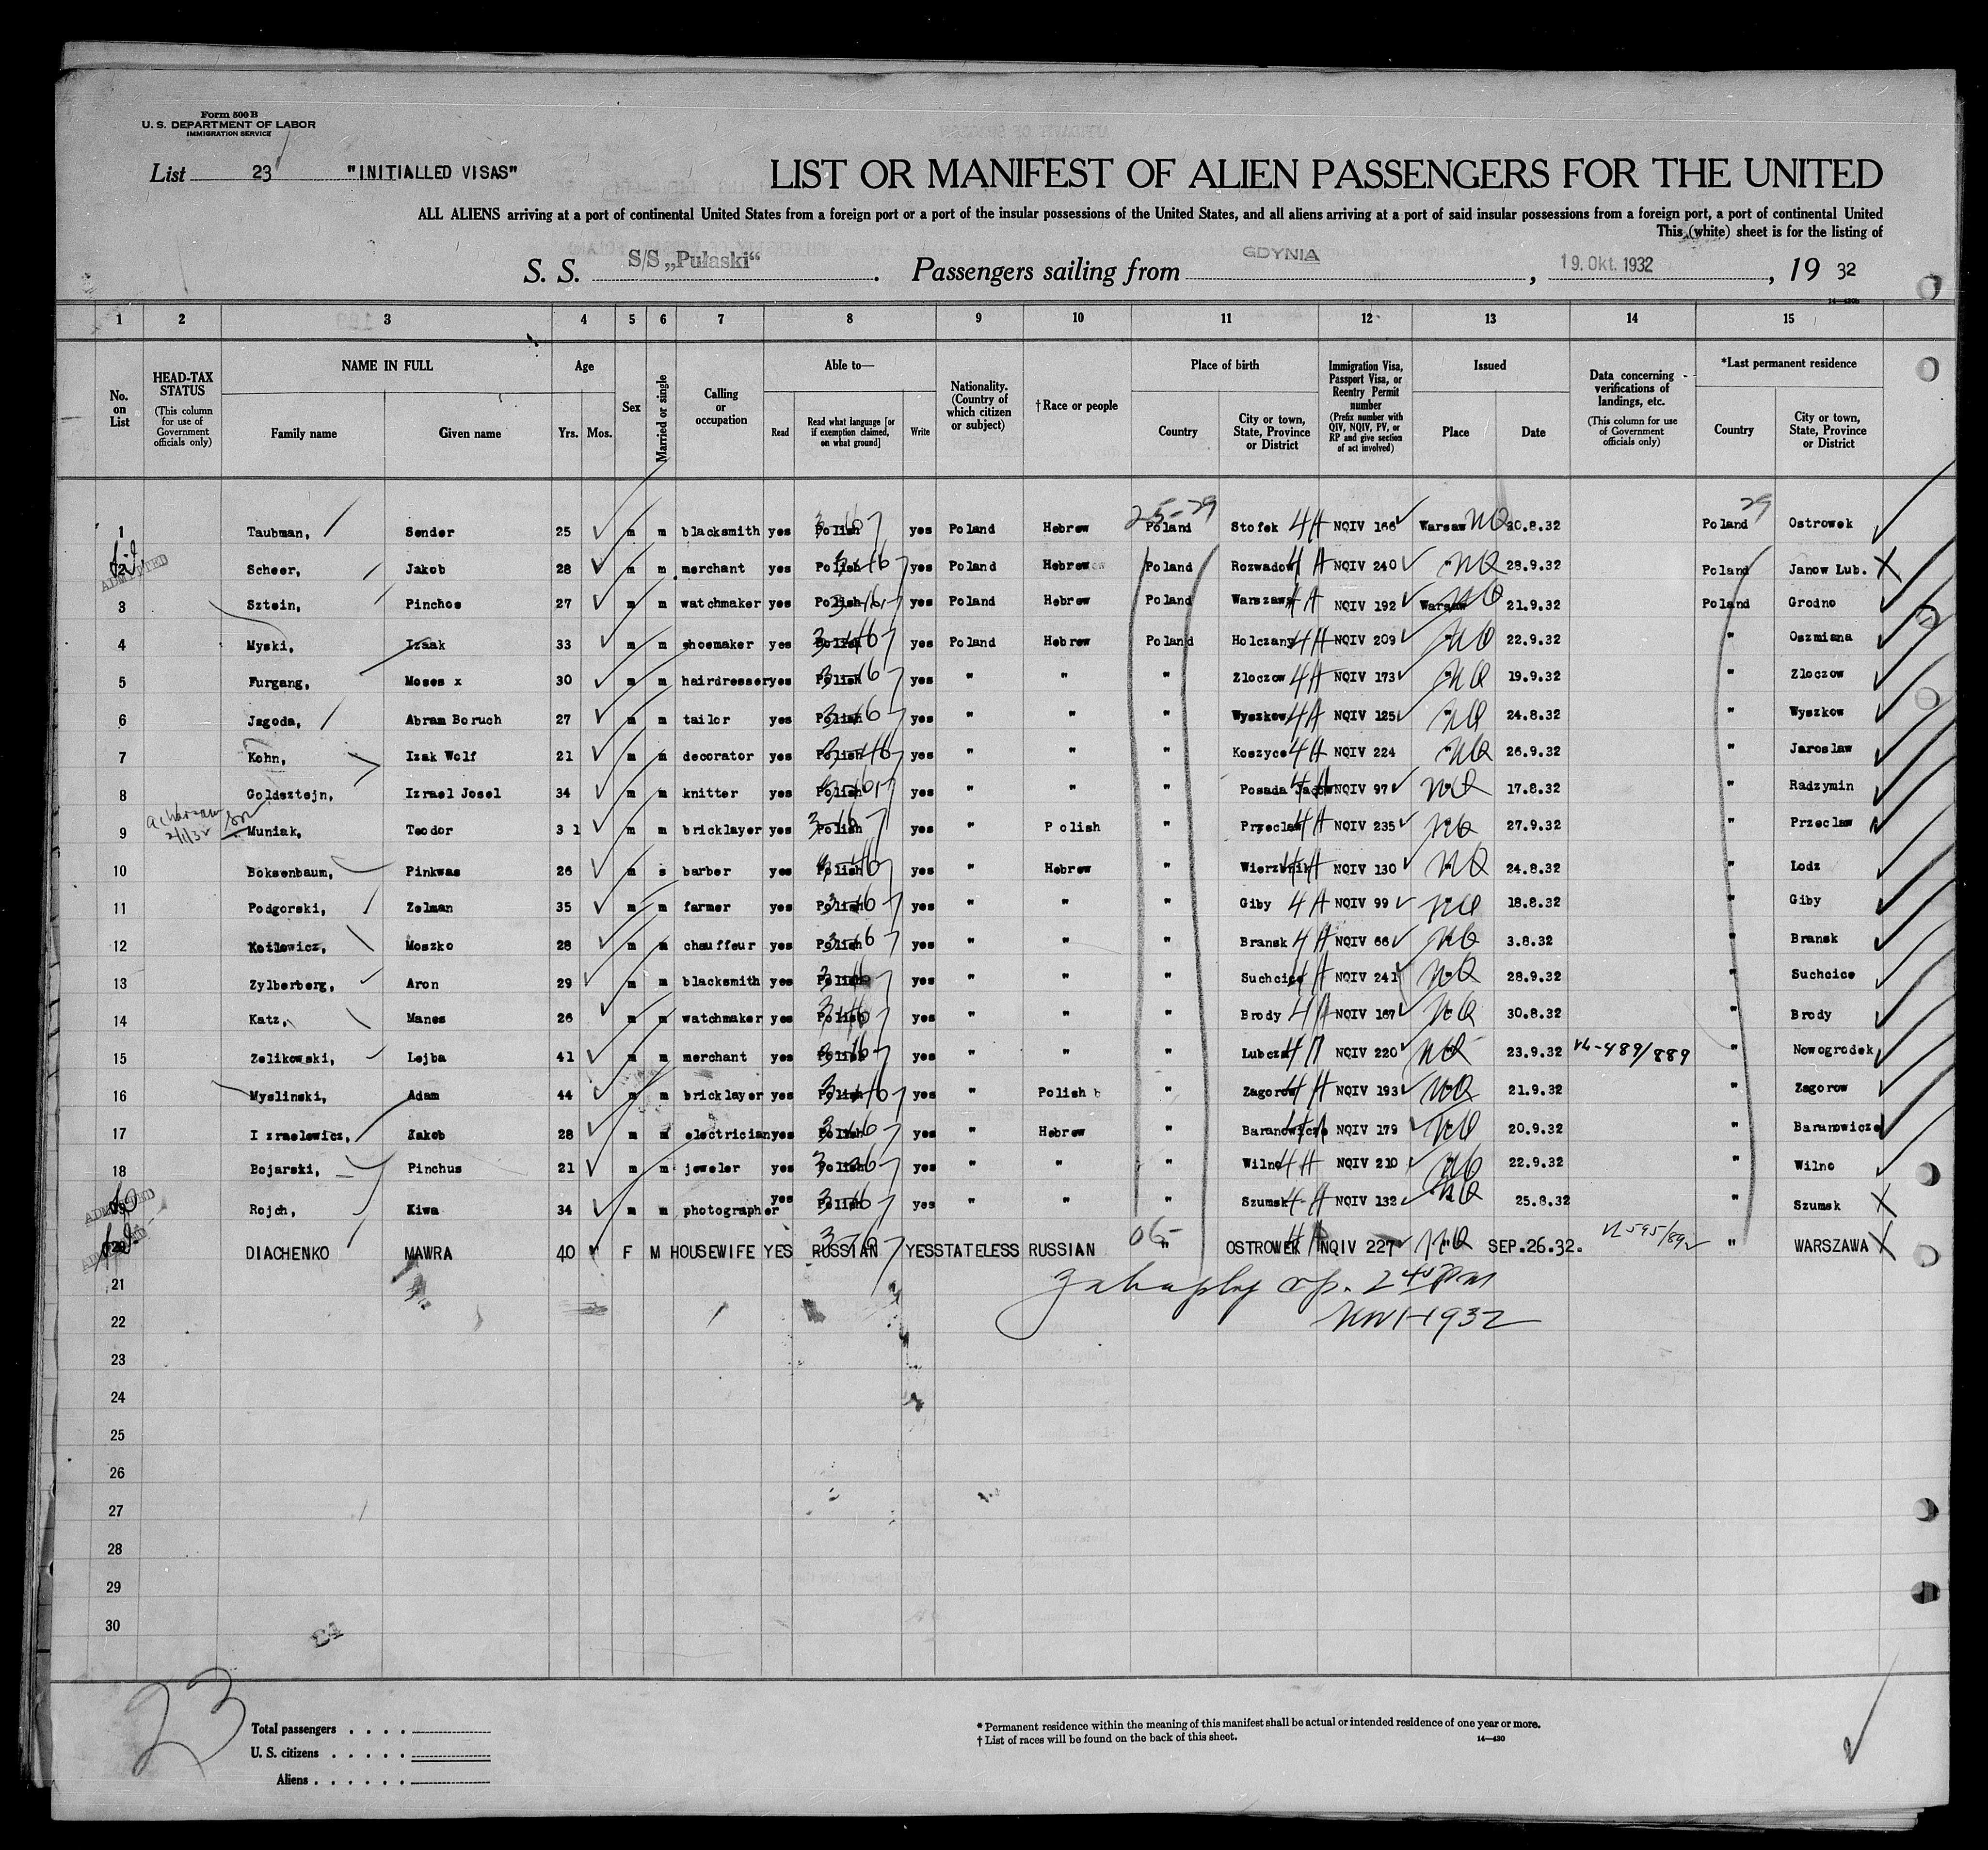 Form 500 B
U. S. DEPARTMENT OF LABOR
IMMIGRATION SERVICE
List 23 "INITIALLED VISAS"
LIST OR MANIFEST OF ALIEN PASSENGERS FOR THE UNITED
ALL ALIENS arriving at a port of continental United States from a foreign port or a port of the insular possessions of the United States, and all aliens arriving at a port of said insular possessions from a foreign port, a port of continental United
This (white) sheet is for the listing of
S. S. S/S „Pułaski“. Passengers sailing from GDYNIA, 19. Okt. 1932, 19 32
14—430b
1 2 3 4 5 6 7 8 9 10 11 12 13 14 15
No. on List
HEAD-TAX STATUS (This column for use of Government officials only)
NAME IN FULL Family name Given name
Age Yrs. Mos.
Sex
Married or single
Calling or occupation
Able to— Read Read what language [or if exemption claimed, on what ground] Write
Nationality. (Country of which citizen or subject)
†Race or people
Place of birth Country City or town, State, Province or District
Immigration Visa, Passport Visa, or Reentry Permit number (Prefix number with QIV, NQIV, PV, or RP and give section of act involved)
Issued Place Date
Data concerning verifications of landings, etc. (This column for use of Government officials only)
*Last permanent residence Country City or town, State, Province or District
25-29 29
1 Taubman, Sender 25 m m blacksmith yes Polish yes Poland Hebrew Poland Stofek 4A NQIV 166 Warsaw NQ 30.8.32 Poland Ostrowek
2 ADMITTED Scheer, Jakob 28 m m merchant yes Polish yes Poland Hebrew Poland Rozwadow 4A NQIV 240 " NQ 28.9.32 Poland Janow Lub. X
3 Sztein, Pinchos 27 m m watchmaker yes Polish yes Poland Hebrew Poland Warszawa 4A NQIV 192 Warsaw NQ 21.9.32 Poland Grodno
4 Myski, Izaak 33 m m shoemaker yes Polish yes Poland Hebrew Poland Holczany 4A NQIV 209 " NQ 22.9.32 " Oszmiana
5 Furgang, Moses x 30 m m hairdresser yes Polish yes " " " Zloczow 4A NQIV 173 " NQ 19.9.32 " Zloczow
6 Jagoda, Abram Boruch 27 m m tailor yes Polish yes " " " Wyszkow 4A NQIV 125 " NQ 24.8.32 " Wyszkow
7 Kohn, Izak Wolf 21 m m decorator yes Polish yes " " " Koszyce 4A NQIV 224 " NQ 26.9.32 " Jaroslaw
8 Goldsztejn, Izrael Josel 34 m m knitter yes Polish yes " " " Posada Jadow 4A NQIV 97 " NQ 17.8.32 " Radzymin
9 Muniak, Teodor 31 m m bricklayer yes Polish yes " Polish " Przeclaw 4A NQIV 235 " NQ 27.9.32 " Przeclaw
10 Boksenbaum, Pinkwas 26 m s barber yes Polish yes " Hebrew " Wierzbnik 4A NQIV 130 " NQ 24.8.32 " Lodz
11 Podgorski, Zelman 35 m m farmer yes Polish yes " " " Giby 4A NQIV 99 " NQ 18.8.32 " Giby
12 Kotlowicz, Moszko 28 m m chauffeur yes Polish yes " " " Bransk 4A NQIV 66 " NQ 3.8.32 " Bransk
13 Zylberberg, Aron 29 m m blacksmith yes Polish yes " " " Suchcice 4A NQIV 241 " NQ 28.9.32 " Suchcice
14 Katz, Manes 26 m m watchmaker yes Polish yes " " " Brody 4A NQIV 167 " NQ 30.8.32 " Brody
15 Zelikowski, Lejba 41 m m merchant yes Polish yes " " " Lubcza 4A NQIV 220 " NQ 23.9.32 VL-489/889 " Nowogrodek
16 Myslinski, Adam 44 m m bricklayer yes Polish yes " Polish " Zagorow 4A NQIV 193 " NQ 21.9.32 " Zagorow
17 Izraelewicz, Jakob 28 m m electrician yes Polish yes " Hebrew " Baranowicze 4A NQIV 179 " NQ 20.9.32 " Baranowicze
18 Bojarski, Pinchus 21 m m jeweler yes Polish yes " " " Wilno 4A NQIV 210 " NQ 22.9.32 " Wilno
19 ADMITTED Rojch, Kiwa 34 m m photographer yes Polish yes " " " Szumsk 4A NQIV 132 " NQ 25.8.32 " Szumsk X
20 DIACHENKO MAWRA 40 F M HOUSEWIFE YES RUSSIAN YES STATELESS RUSSIAN " OSTROWEK 4A NQIV 227 " NQ SEP.26.32. VL 595/892 " WARSZAWA X
21 2 40 PM
22 Nov 1-1932
23
24
25
26
27
28
29
30
23
Total passengers
U. S. citizens
Aliens
* Permanent residence within the meaning of this manifest shall be actual or intended residence of one year or more.
† List of races will be found on the back of this sheet. 14—430